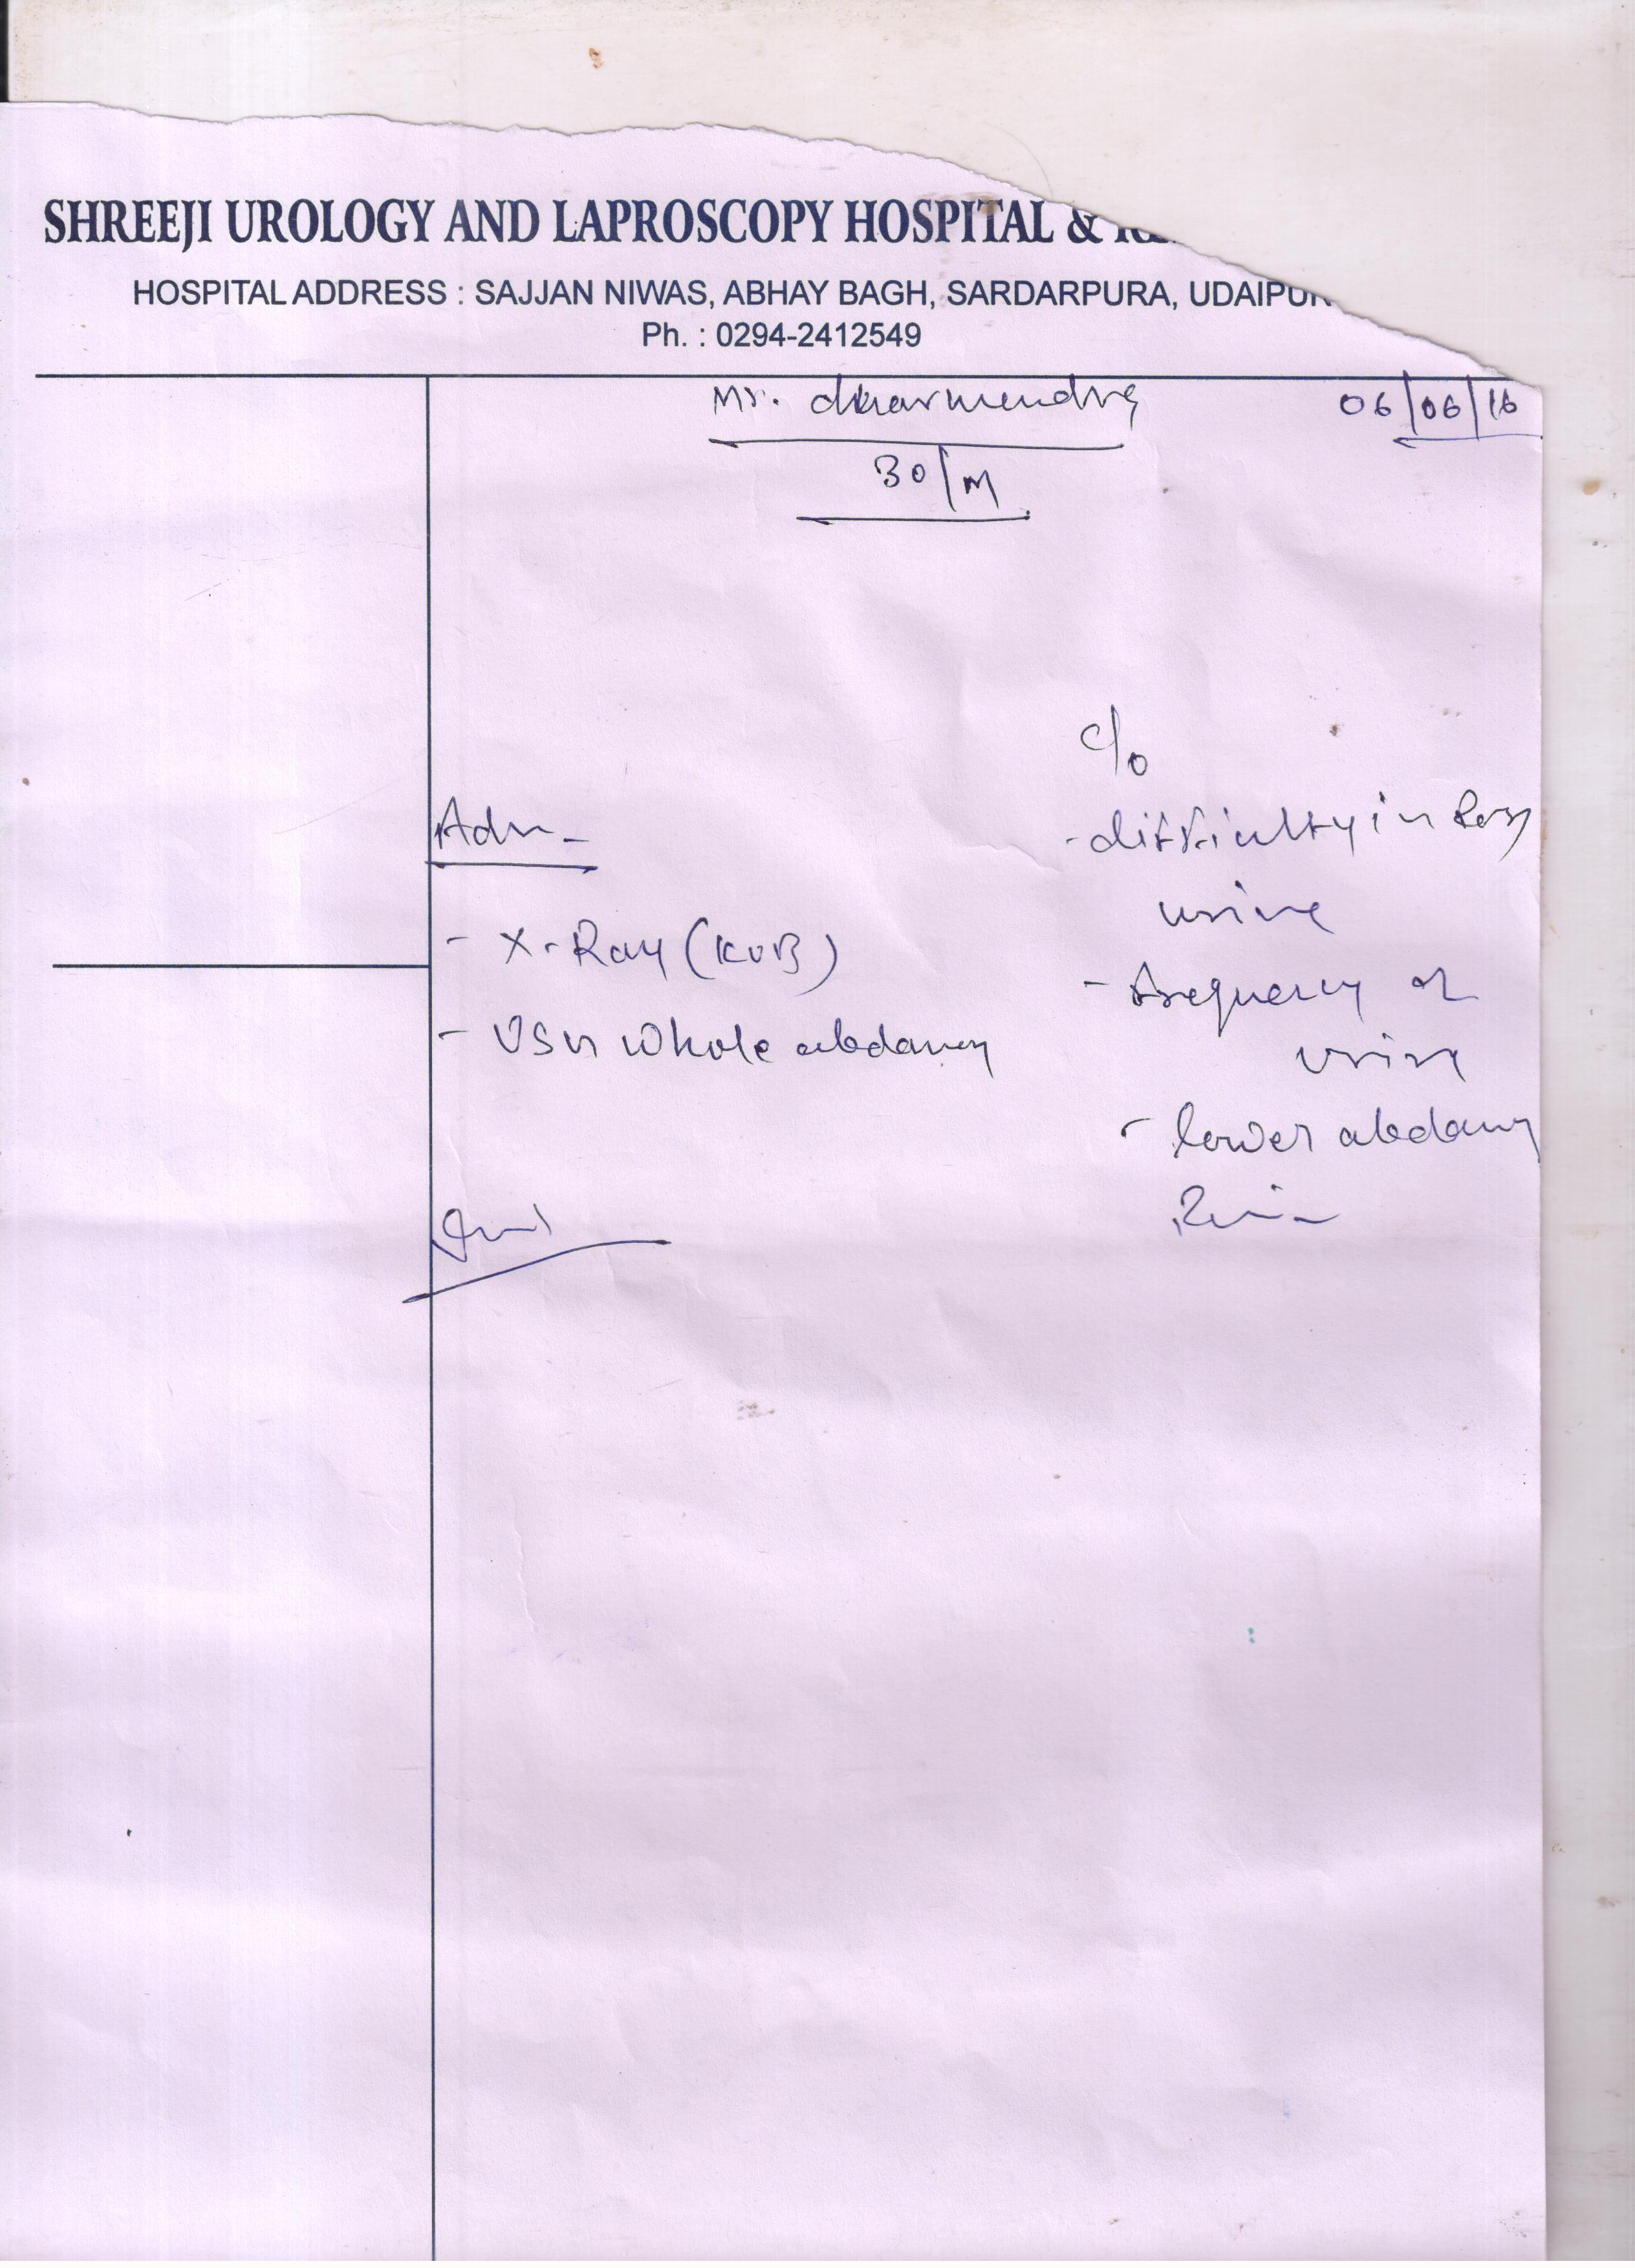 SHREEJI UROLOGY AND LAPROSCOPY HOSPITAL &
HOSPITAL ADDRESS : SAJJAN NIWAS, ABHAY BAGH, SARDARPURA, UDAIPUR
Ph. : 0294-2412549
Mr. dharmendra
06/06/16
30/M
c/o
- difficulty in
urine
- frequency of
urine
- lower abdomen
Pain
Adv -
- X-Ray (KUB)
- USG whole abdomen